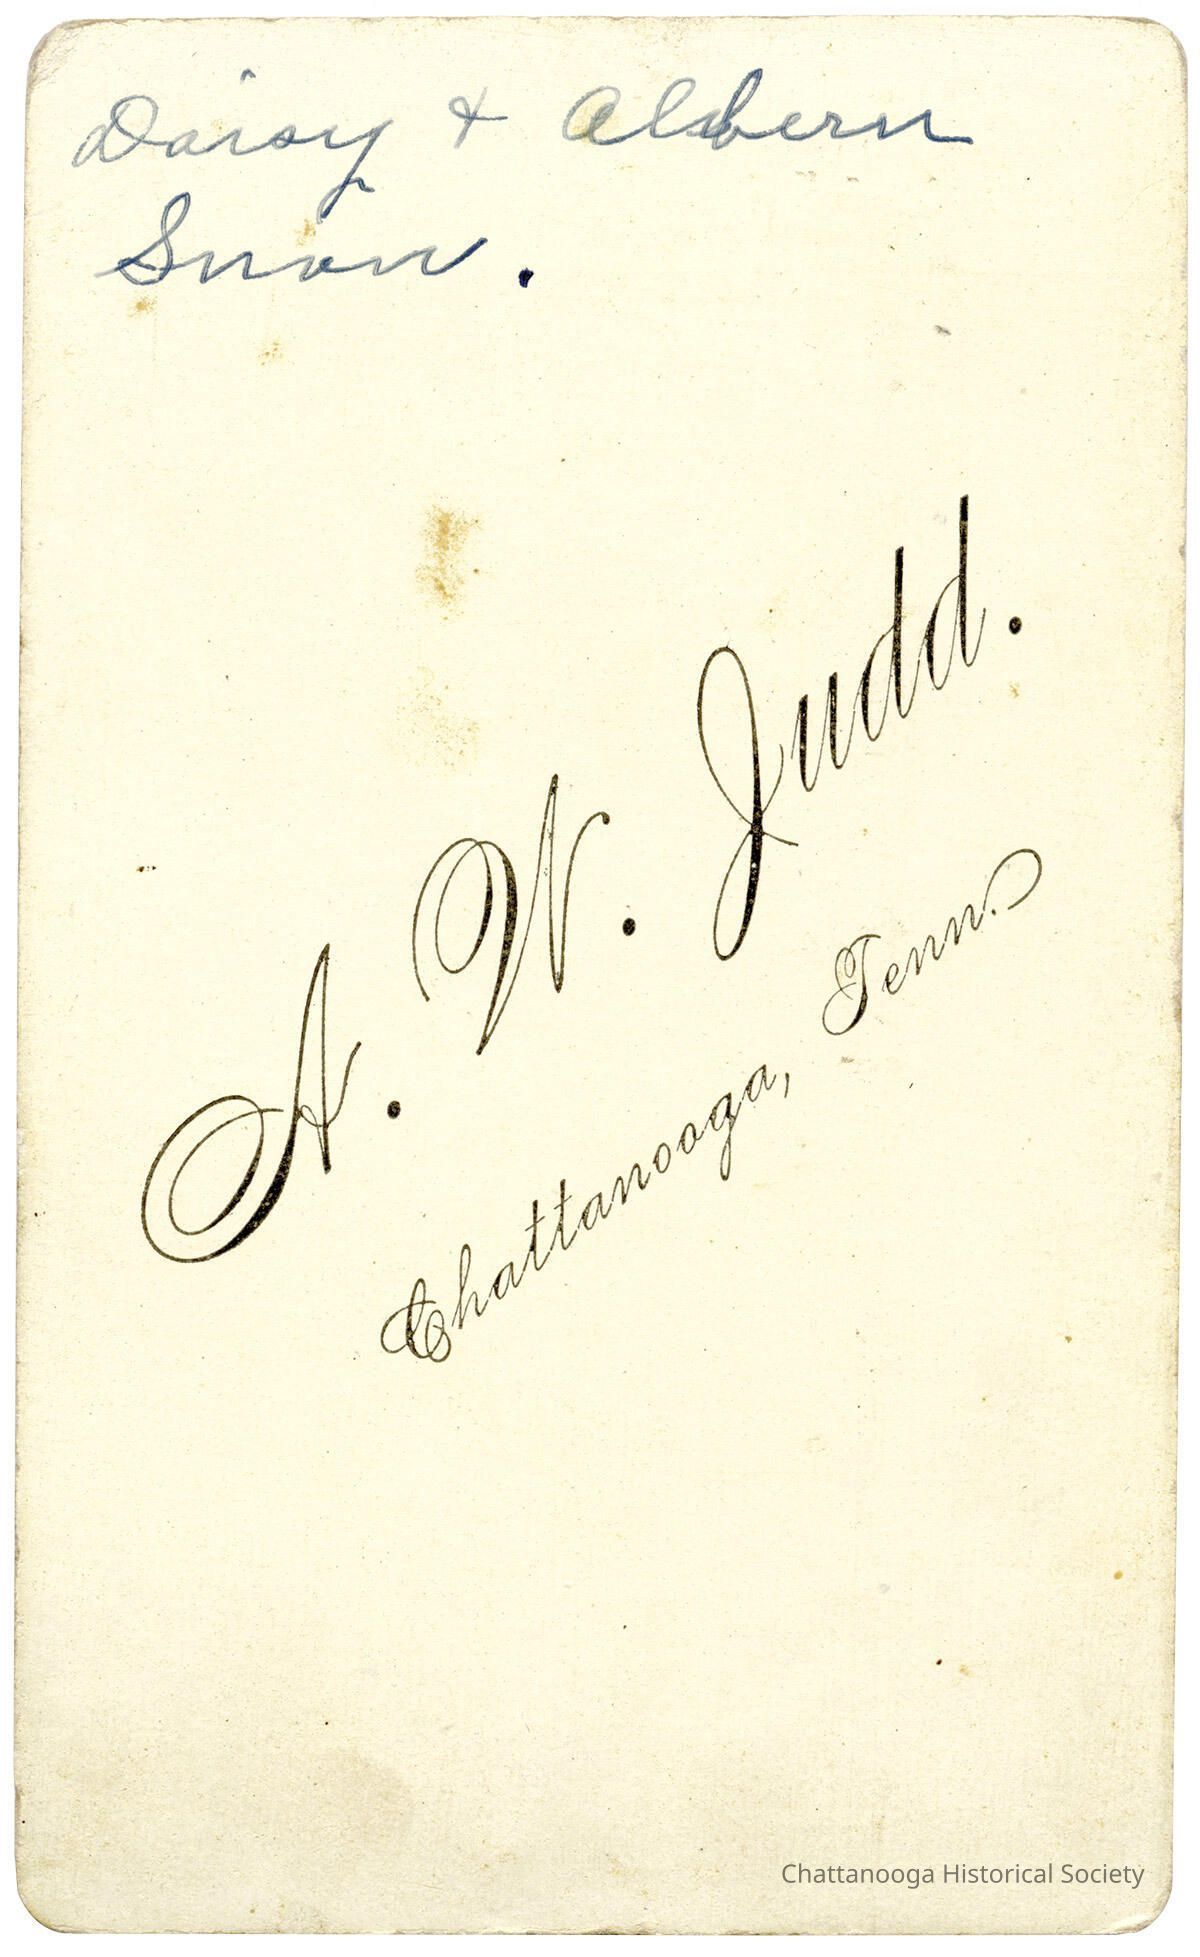 Daisy & Albern
Snow.
A. W. Judd.
Chattanooga, Tenn.
Chattanooga Historical Society